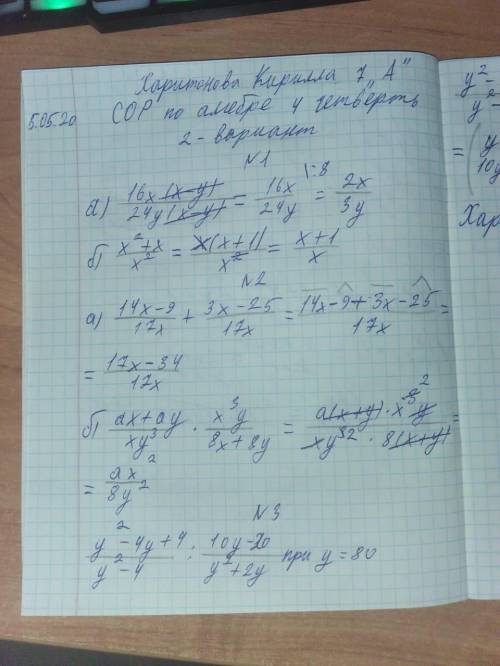 Харитонова Кирилла 7 „А"
5.05.20 СОР по алгебре 4 четверть
2-вариант
№1
а) 16x(x-y)/24y(x-y) = 16x/24y |:8 = 2x/3y
б) x²+x/x² = x(x+1)/x² = x+1/x
№2
а) 14x-9/17x + 3x-25/17x = 14x-9+3x-25/17x =
= 17x-34/17x
б) ax+ay/xy³ · x³y/8x+8y = a(x+y)·x³ ² y/xy³ ² · 8(x+y) =
= ax²/8y²
№3
y²-4y+4/y²-4 : 10y-20/y²+2y при y=80
y²-
y²
= (y
10y
Хар